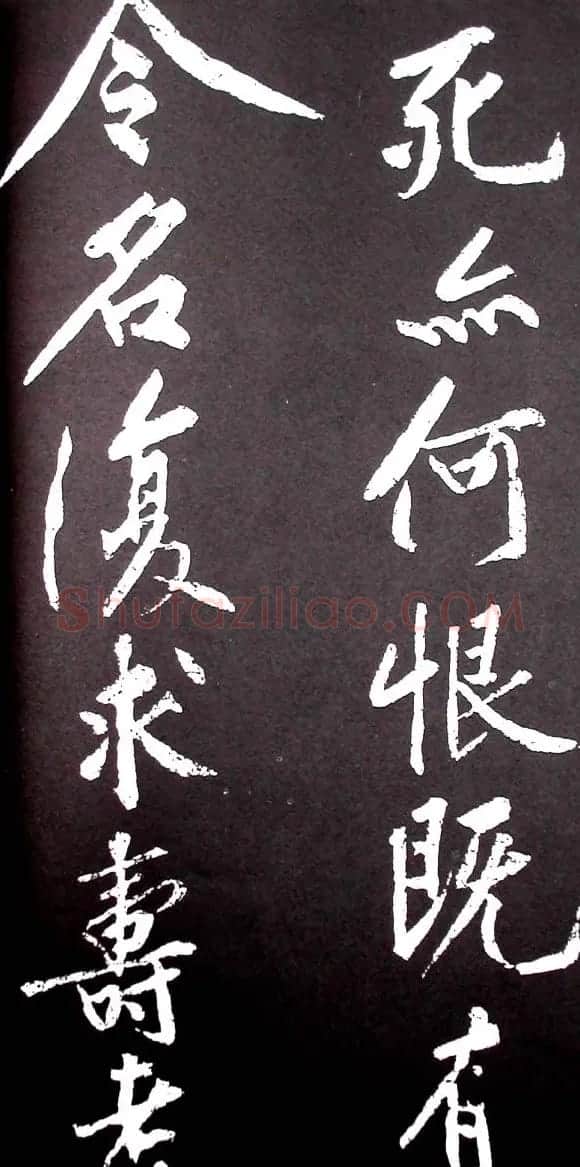 死亦何恨既有
令名復求壽考
Shufaziliao.COM